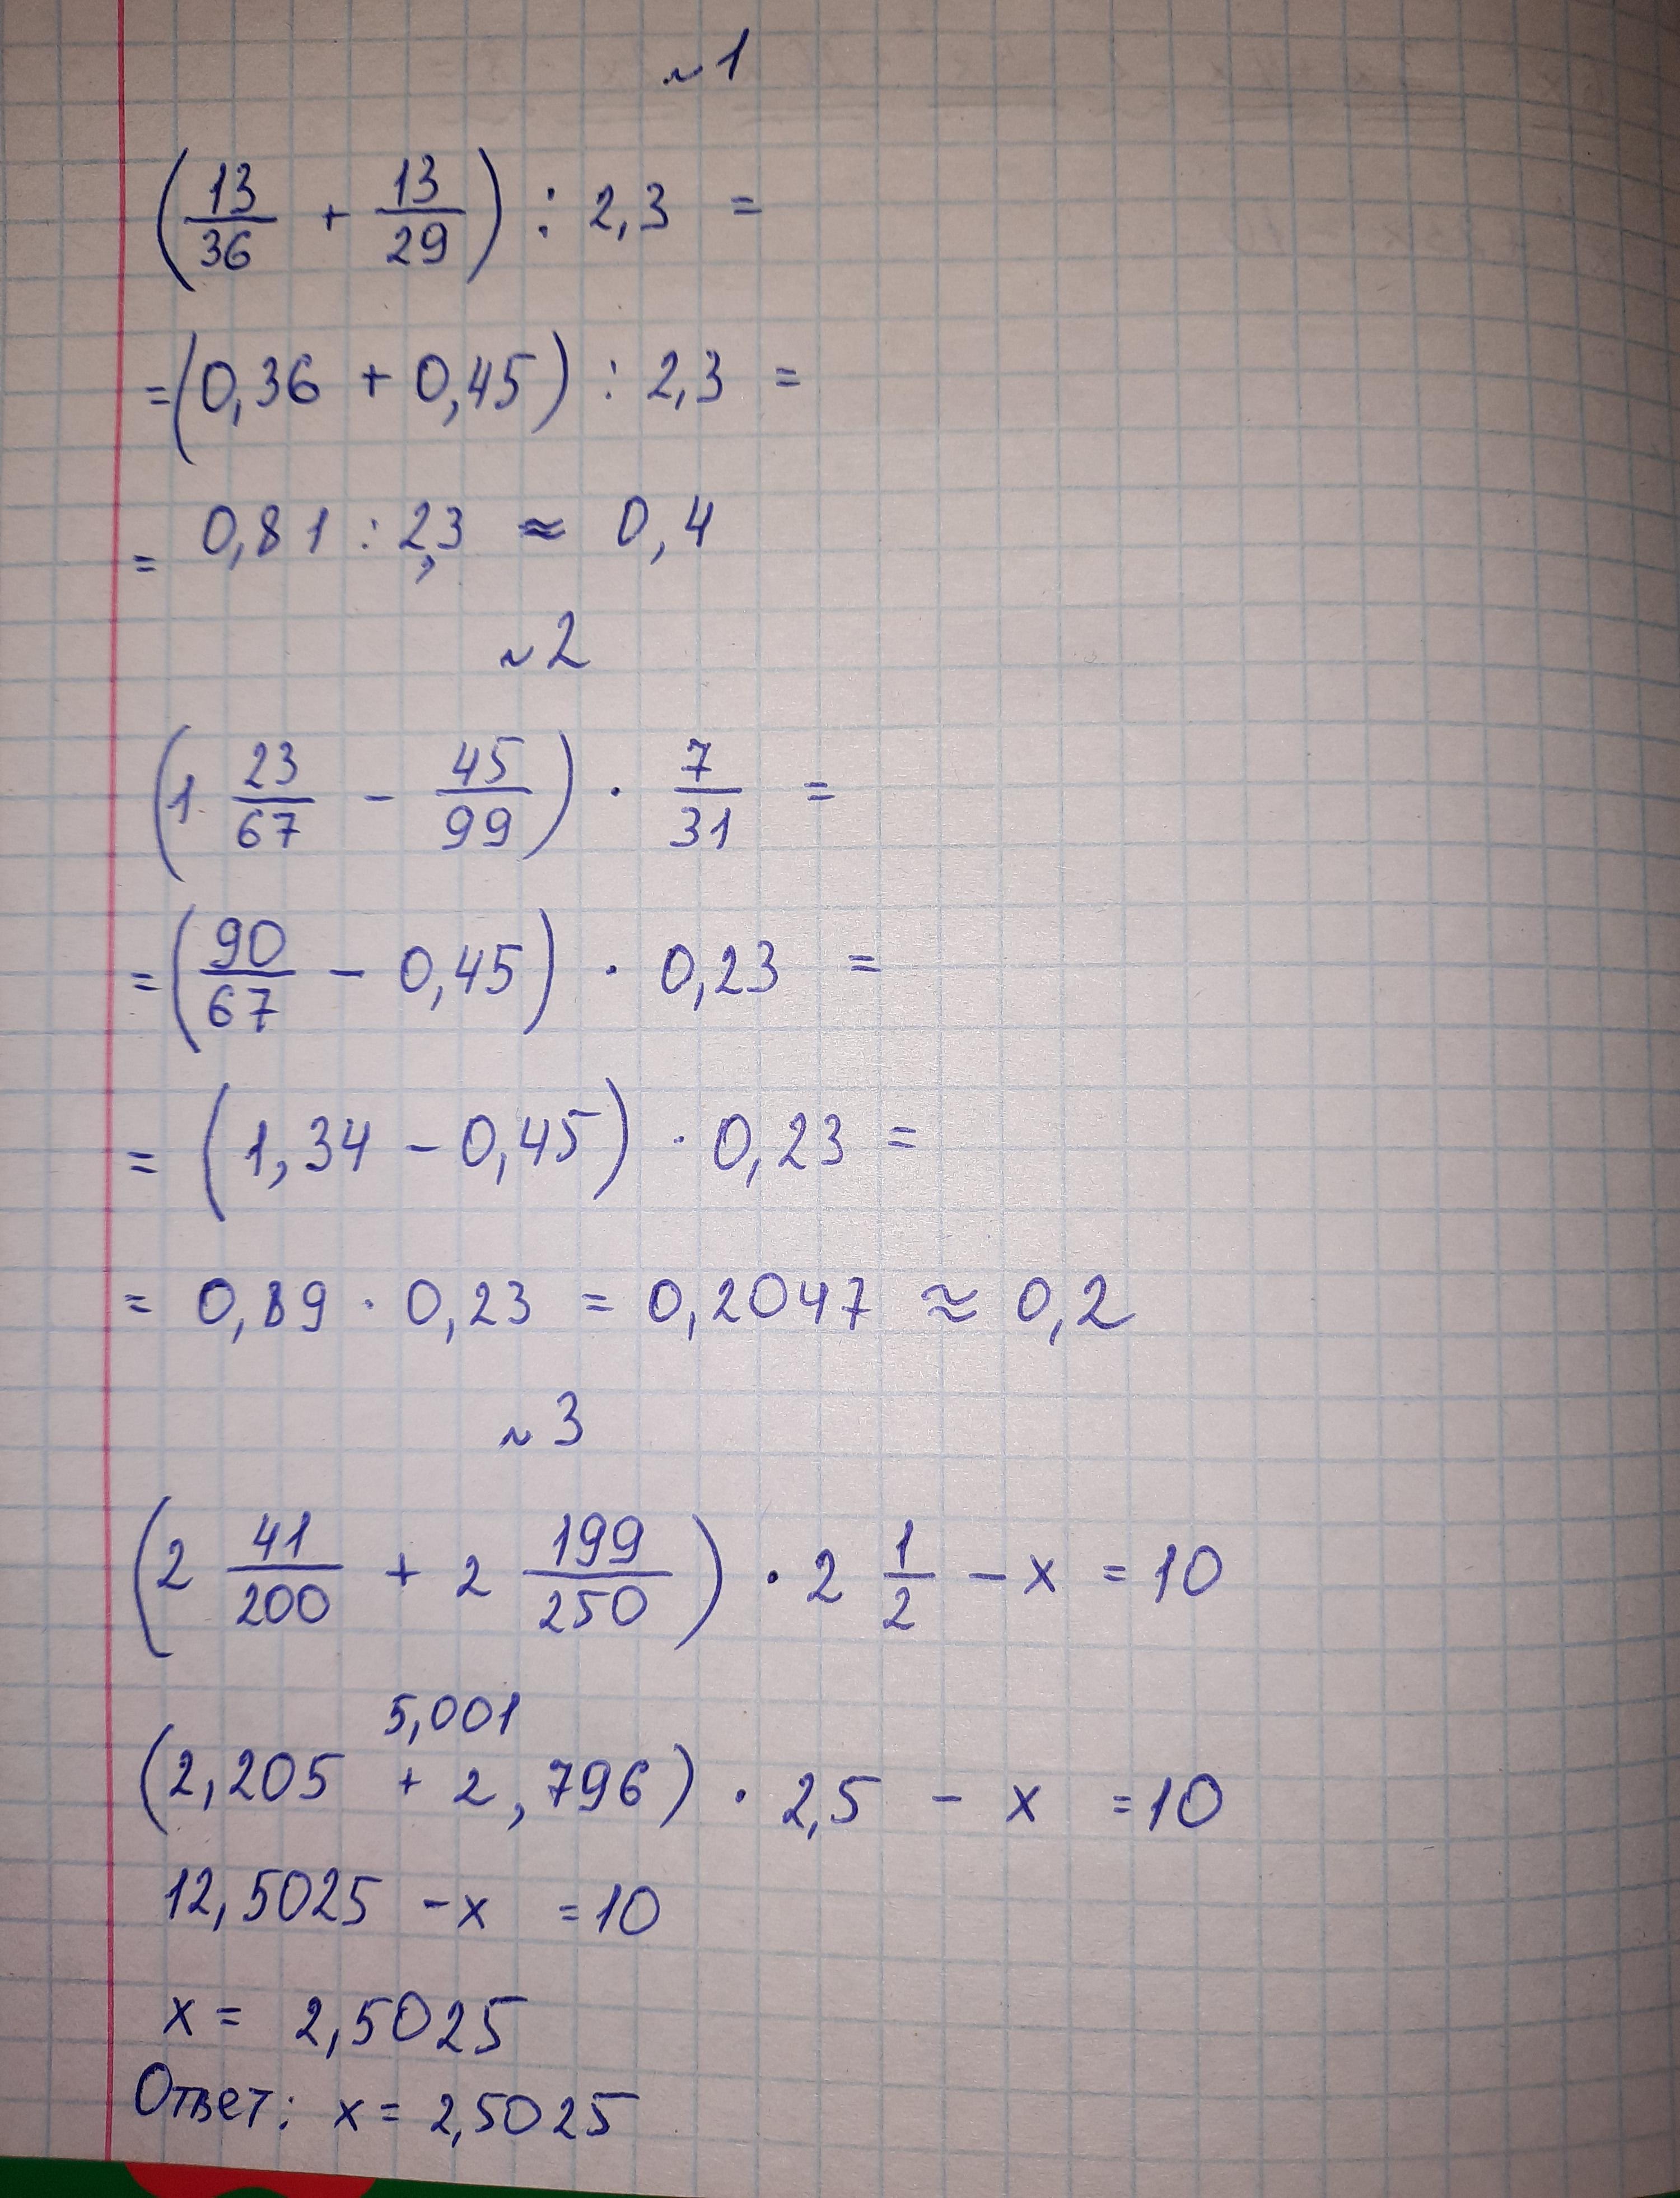 ~1
(13/36 + 13/29) : 2,3 =
=(0,36 + 0,45) : 2,3 =
= 0,81 : 2,3 ≈ 0,4
~2
(1 23/67 - 45/99) · 7/31 =
=(90/67 - 0,45) · 0,23 =
= (1,34 - 0,45) · 0,23 =
= 0,89 · 0,23 = 0,2047 ≈ 0,2
~3
(2 41/200 + 2 199/250) · 2 1/2 - x = 10
5,001
(2,205 + 2,796) · 2,5 - x = 10
12,5025 - x = 10
x = 2,5025
Ответ: x = 2,5025